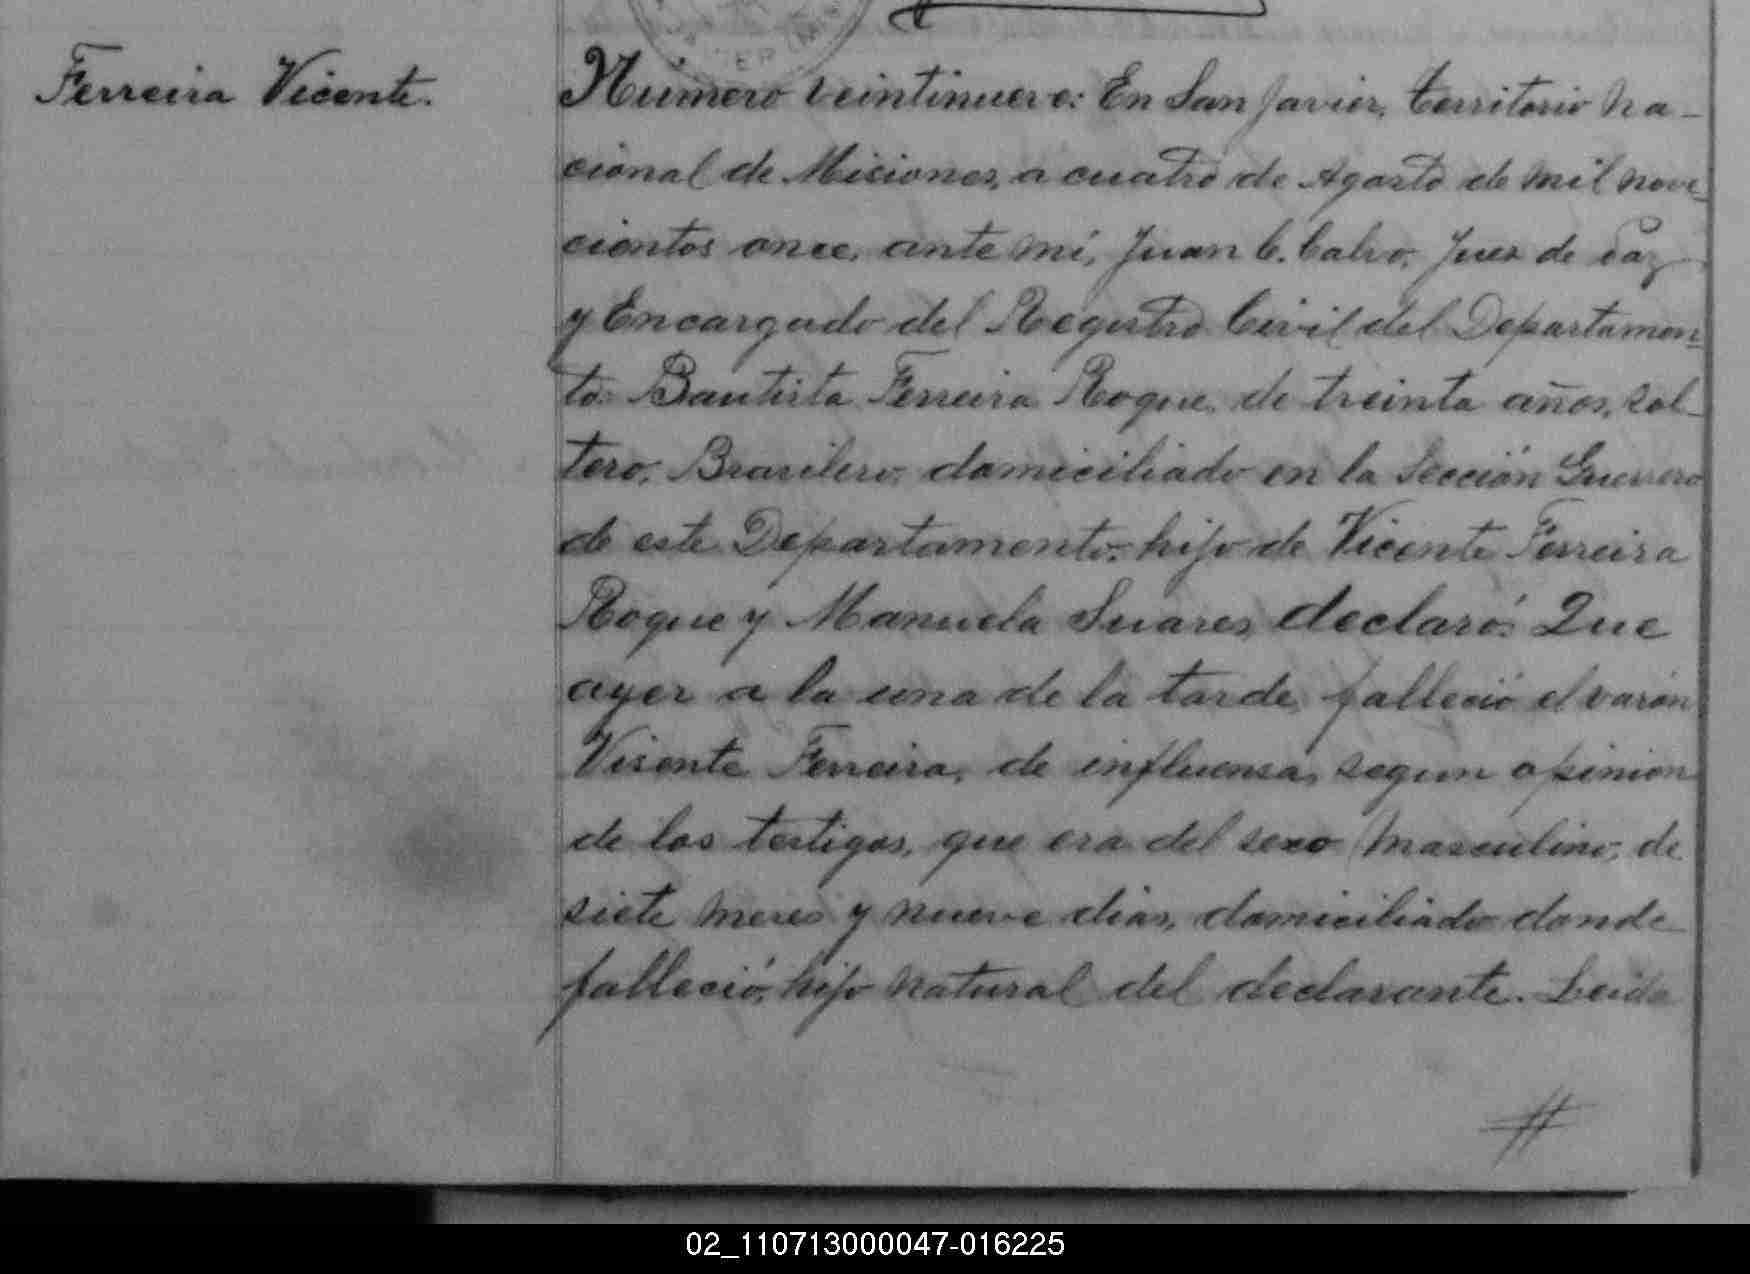 Ferreira Vicente.
Número veintinueve: En San Javier, territorio na-
cional de Misiones, a cuatro de Agosto de mil nove-
cientos once, ante mí, Juan C. Calvo, Juez de Paz
y Encargado del Registro Civil del Departamen-
to: Bautista Ferreira Roque, de treinta años, sol-
tero, Brasilero, domiciliado en la Sección Guerrero
de este Departamento, hijo de Vicente Ferreira
Roque y Manuela Suares, declaró: Que
ayer a la una de la tarde, falleció el varón
Visente Ferreira, de influensa, segun opinion
de los testigos, que era del sexo masculino, de
siete meses y nueve dias, domiciliado donde
falleció, hijo natural del declarante. Leida
#
02_110713000047-016225